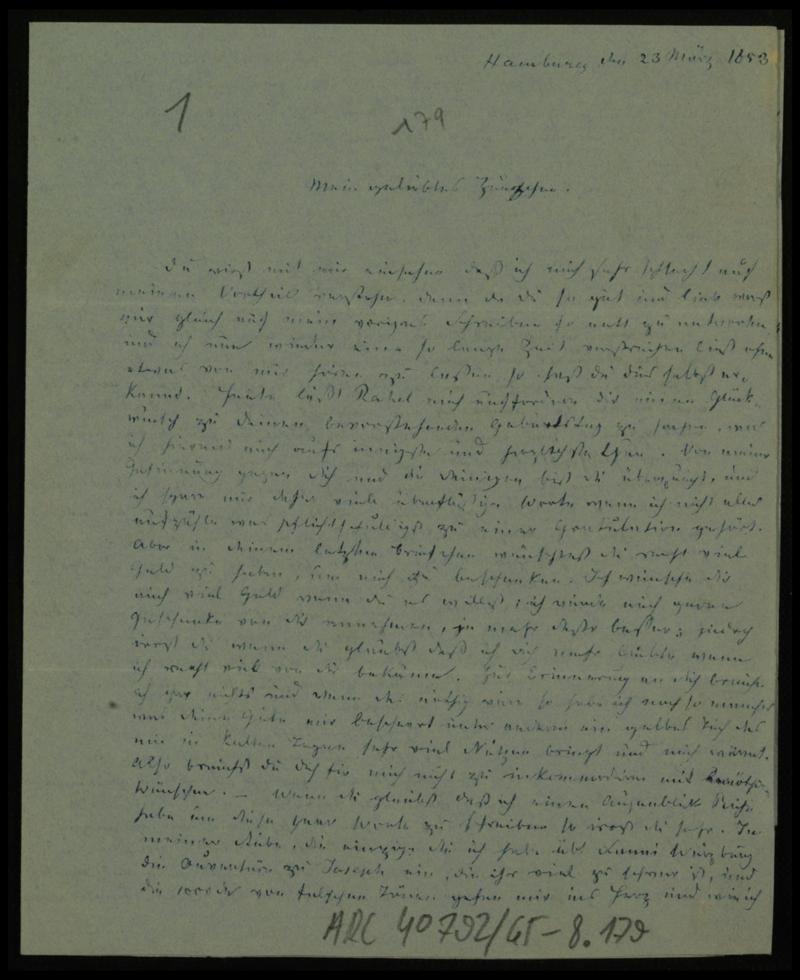 Hamburg den 23 März 1853
1
179
Mein geliebtes
Du wirst mit mir einsehen daß ich mich sehr schlecht auf
meinen Vortheil verstehe, denn da du so gut und lieb warst
mir gleich auf mein voriges Schreiben so nett zu antworten
und ich nun wieder eine so lange Zeit verstreichen ließ ohne
etwas von mir hören zu lassen so hast du dies selbst er-
kannt. Heute läßt Rahel mich auffordern dir meinen Glück-
wunsch zu deinem bevorstehenden Geburtstag zu sagen, was
ich hiermit auch aufs innigste und herzlichste thue. Von meiner
Gesinnung gegen dich und die deinigen bist du überzeugt, und
ich spare mir daher viele überflüssige Worte wenn ich nicht alles
aufzähle was pflichtschuldigst zu einer Gratulation gehört.
Aber in deinem letzten Briefchen wünschtest du recht viel
Geld zu haben, um mich zu beschenken. Ich wünsche dir
auch viel Geld wenn du es willst, ich würde auch gerne
Geschenke von dir annehmen, je mehr desto besser; jedoch
irrst du wenn du glaubst daß ich dich mehr liebte wenn
ich recht viel von dir bekäme. Zur Erinnerung an dich brauche
ich gar nichts und wenn das nöthig wäre so habe ich noch so manches
was deine Güte mir bescheert unter anderm ein gelbes Tuch das
mir in kalten Tagen sehr viel Nutzen bringt und mich wärmt.
Also brauchst du dich für mich nicht zu inkommodiren mit
Wünschen. – Wenn du glaubst daß ich einen Augenblick Ruhe
habe um diese paar Worte zu schreiben so irrst du sehr. In
meiner Stube, die einzige die ich habe übt Fanni Würzburg
die Ouverture zu Joseph ein, die ihr viel zu schwer ist, und
die von falschen Tönen gehen mir ins Herz und wie ich
ARC 40792/65-8.179